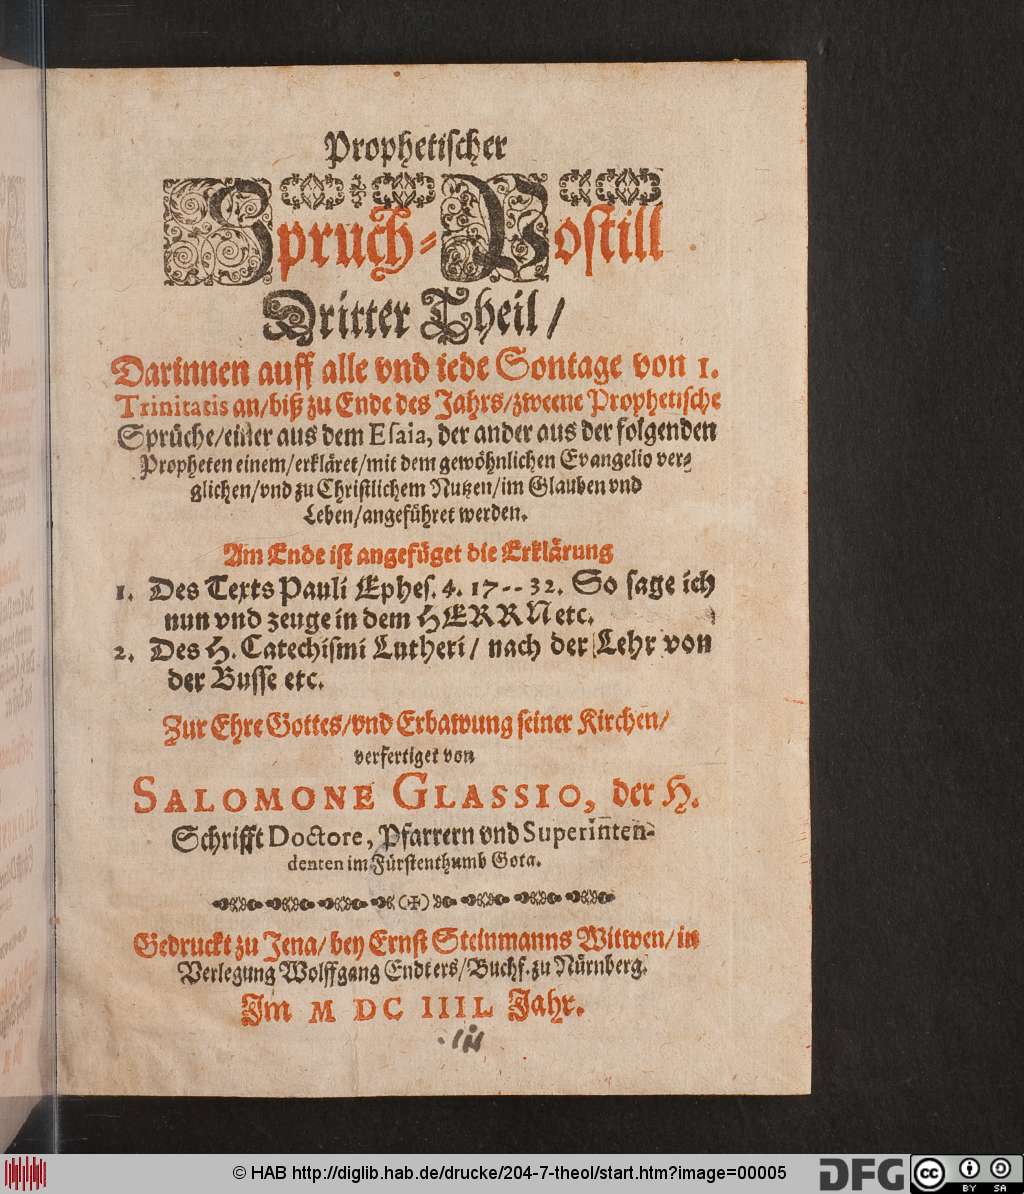 Prophetischer
Spruch-Postill
Dritter Theil/
Darinnen auff alle vnd iede Sontage von 1.
Trinitatis an/biß zu Ende des Jahrs/zweene Prophetische
Sprüche/einer aus dem Esaia, der ander aus der folgenden
Propheten einem/erkläret/mit dem gewöhnlichen Evangelio ver-
glichen/vnd zu Christlichem Nutzen/im Glauben vnd
Leben/angeführet werden.
Am Ende ist angefüget die Erklärung
1. Des Texts Pauli Ephes. 4. 17--32. So sage ich
nun vnd zeuge in dem HERRN etc.
2. Des H. Catechismi Lutheri/ nach der Lehr von
der Busse etc.
Zur Ehre Gottes/vnd Erbawung seiner Kirchen/
verfertiget von
SALOMONE GLASSIO, der H.
Schrifft Doctore, Pfarrern vnd Superinten-
denten im Fürstenthumb Gota.
Gedruckt zu Jena/ bey Ernst Steinmanns Witwen/in
Verlegung Wolffgang Endters/Buchf. zu Nürnberg.
Im M DC IIIL Jahr.
© HAB http://diglib.hab.de/drucke/204-7-theol/start.htm?image=00005
DFG
cc BY SA